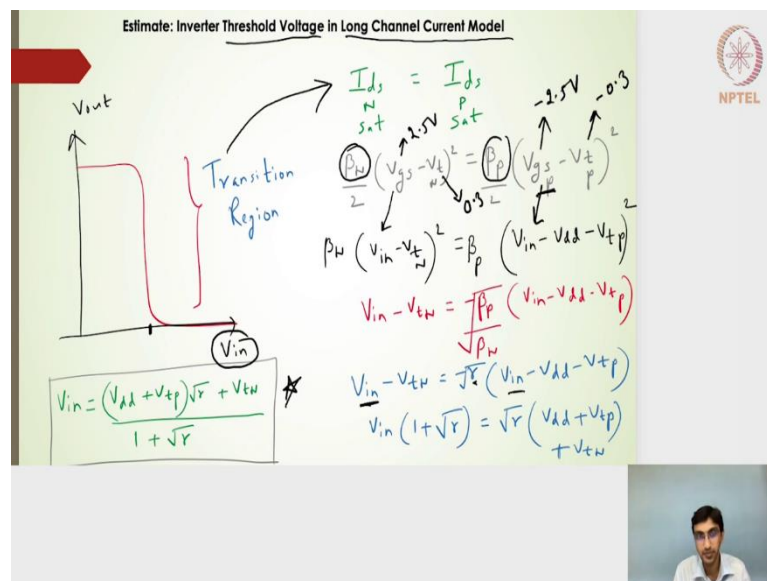 Estimate: Inverter Threshold Voltage in Long Channel Current Model
NPTEL
Vout
Transition
Region
Vin
Ids N sat = Ids P sat
2.5V
-2.5V
-0.3
βN/2 (Vgs - VtN)² = βp/2 (Vgsp - Vtp)²
0.3
βN (Vin - VtN)² = βp (Vin - Vdd - Vtp)²
Vin - VtN = -√βp/√βN (Vin - Vdd - Vtp)
Vin - VtN = √r (Vin - Vdd - Vtp)
Vin (1 + √r) = √r (Vdd + Vtp)
+ VtN
Vin = (Vdd + Vtp)√r + VtN
1 + √r